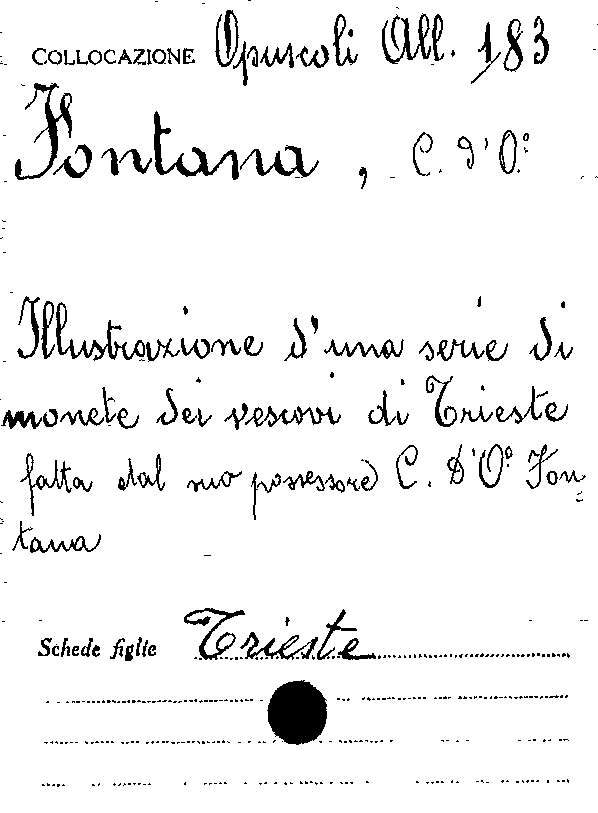 COLLOCAZIONE Opuscoli All. 183
Fontana, C. d'O.º
Illustrazione d'una serie di
monete dei vescovi di Trieste
fatta dal suo possessore C. D'Oº Fon
tana
Schede figlie Trieste